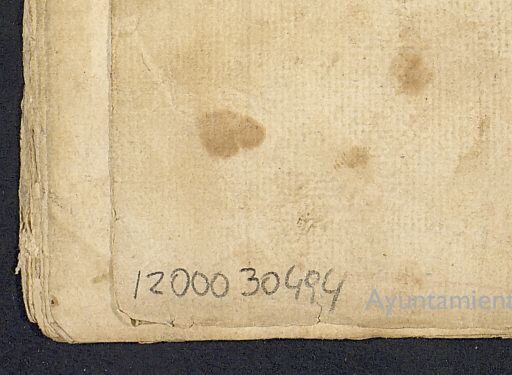 1200030494
Ayuntamient